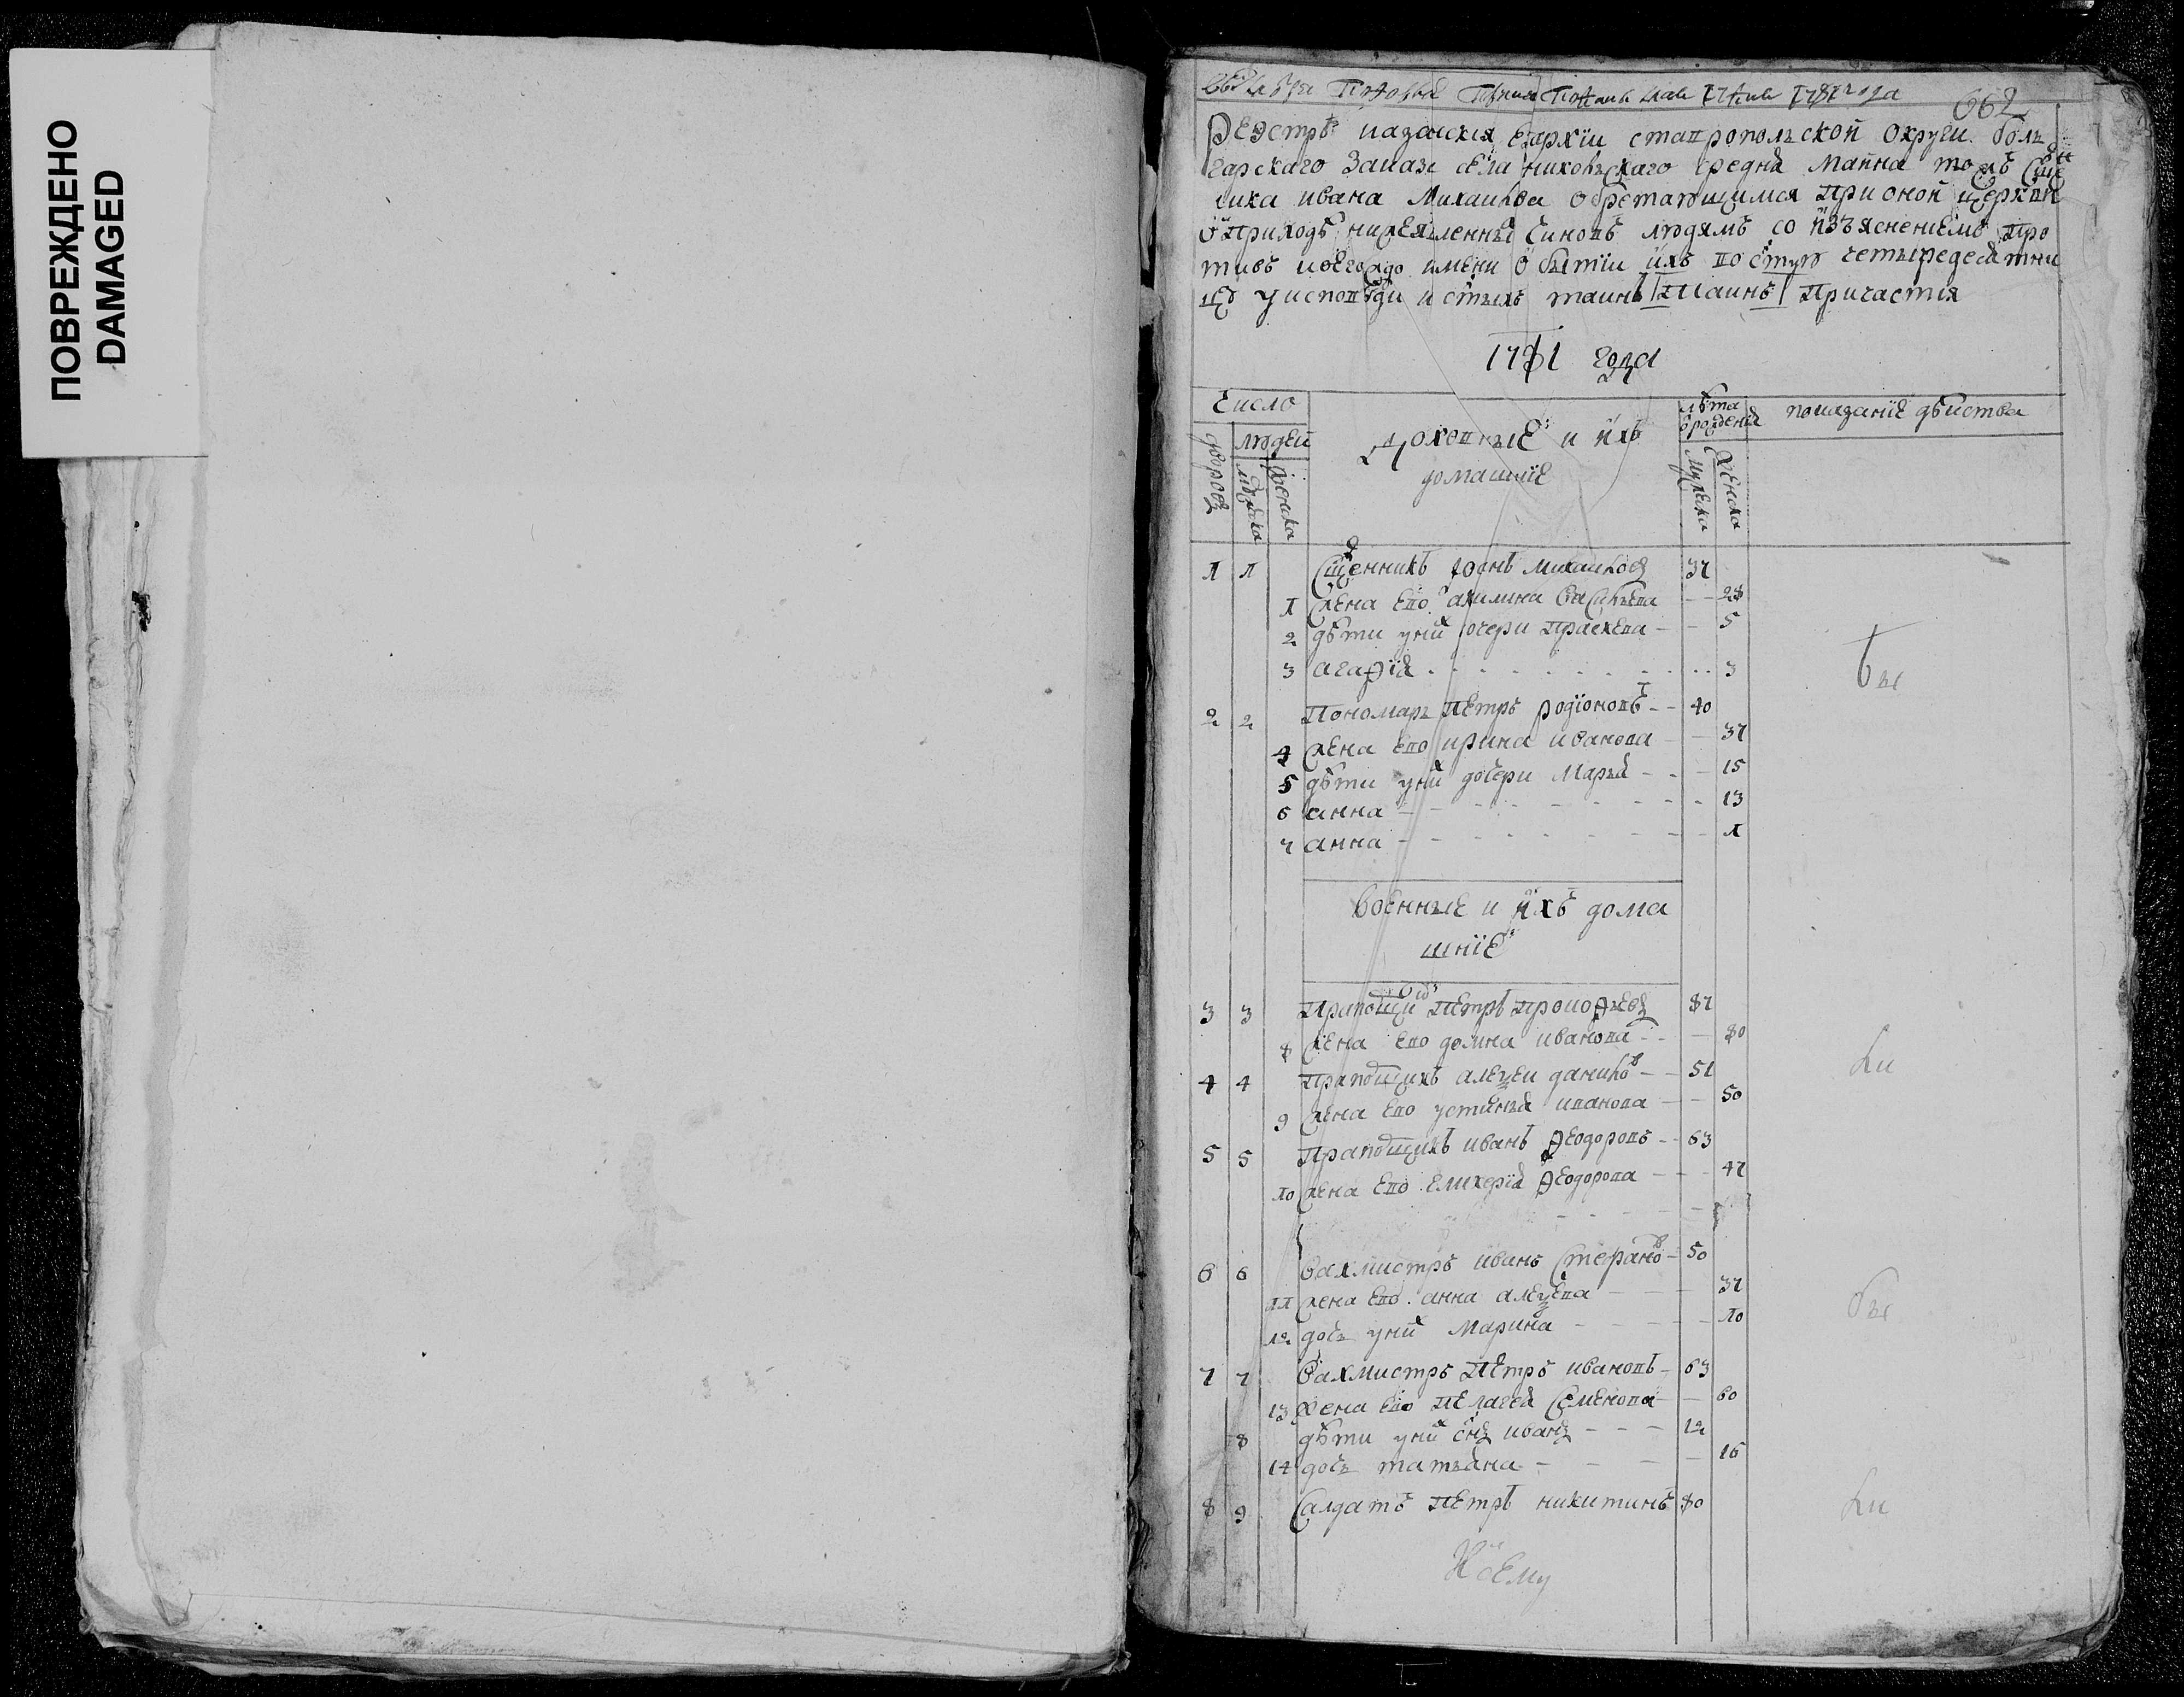 ПОВРЕЖДЕНО
DAMAGED
662
Реэстръ казанския епархїи ставропольской округи болъ
гарскаго заказа села никольскаго средня майна тожъ сщ
ника ивана михаилова обретающимся при оной церкви
въ приходѣ нижеявленныхъ чиновъ людямъ со изъяснениемъ про
тивъ коегождо имени о бытии ихъ во стую четыредесятни
цу у исповѣди и стыхъ таинъ причастия
1781 года
Число
дворовъ
людей
мужска
женска
Духовные и ихъ
домашние
лѣта
ѿ рождения
мужска
женска
показание дѣйства
1 1 Сщенникъ Иоаннъ Михаиловъ 37
1 жена ево акилина васильева 28
2 дѣти ихъ дочери праскева 5
3 агафия 3
бы
2 2 Пономарь петръ родионовъ 40
4 жена ево ирина иванова 37
5 дѣти у нихъ дочери марья 15
6 анна 13
7 анна 1
Военные и ихъ дома
шние
3 3 Прапощикъ петръ прокофьевъ 87
8 жена ево домна иванова 80
4 4 Прапощикъ алеѯеи даниловъ 51
9 жена ево устинья иванова 50
ли
5 5 Прапощикъ иванъ ѳеодоровъ 63
10 жена ево гликерия ѳеодорова 47
6 6 Вахмистръ иванъ степановъ 50
11 жена ево анна алеѯева 37
12 дочь у нихъ марина 10
бы
7 7 Вахмистръ петръ ивановъ 63
13 жена ево пелагея семенова 60
8 дѣти у нихъ снъ иванъ 12
14 дочь татьяна 16
8 9 Салдатъ петръ никитинъ 80
ли
К сему